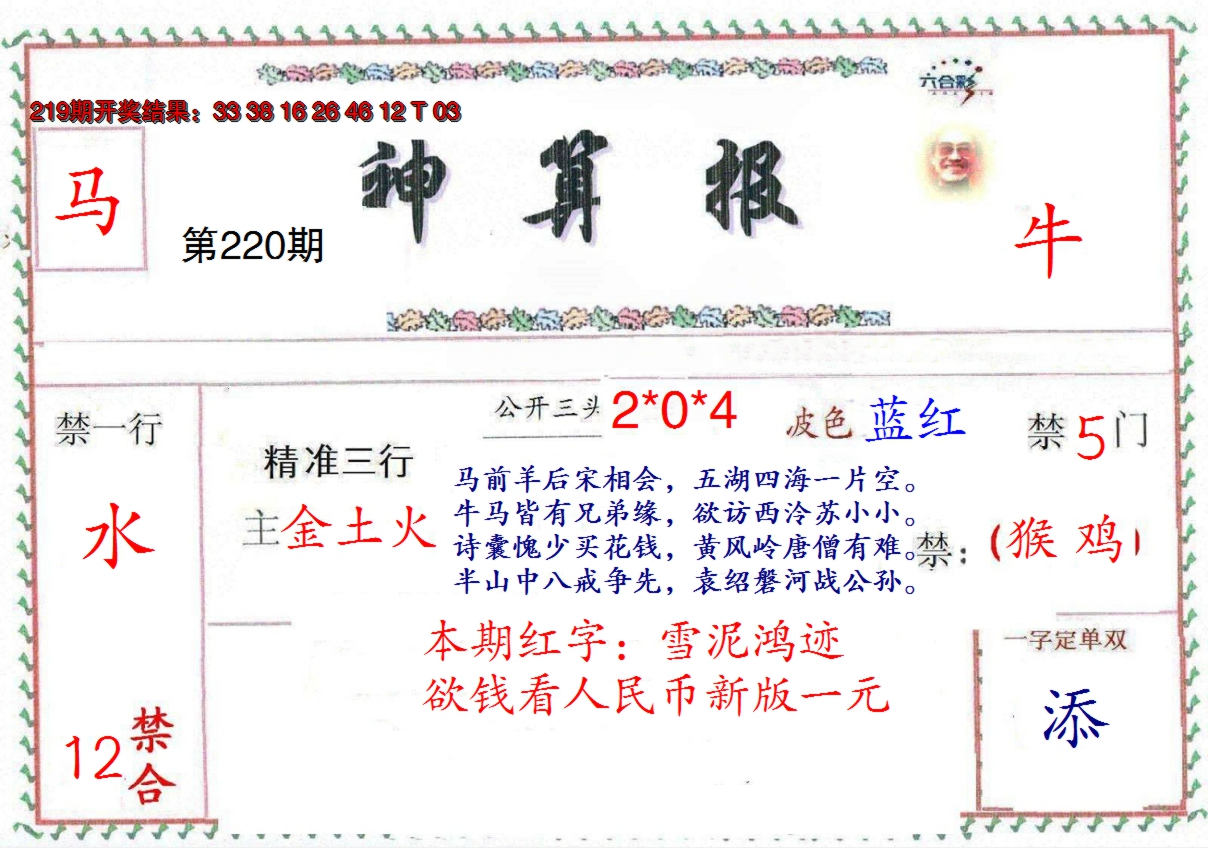 六合彩
219期开奖结果：33 38 16 26 46 12 T 03
马
神算报
第220期
牛
禁一行
水
12
禁合
精准三行
主金土火
公开三头 2*0*4
波色 蓝红
禁5门
马前羊后宋相会，五湖四海一片空。
牛马皆有兄弟缘，欲访西泠苏小小。
诗囊愧少买花钱，黄风岭唐僧有难。
半山中八戒争先，袁绍磐河战公孙。
禁：（猴 鸡）
本期红字：雪泥鸿迹
欲钱看人民币新版一元
一字定单双
添